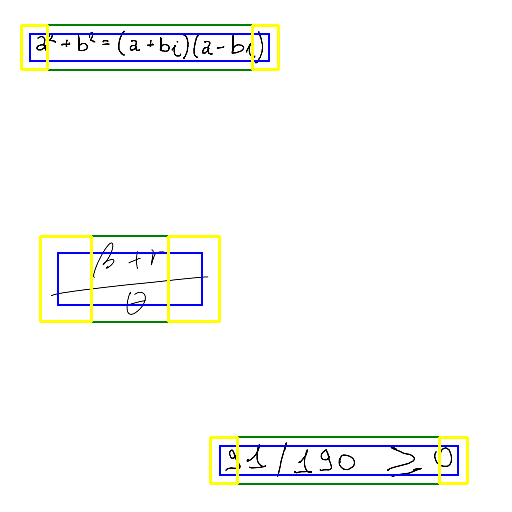 a² + b² = (a + bi)(a - bi)
β + r
θ
91/190 ≥ 0